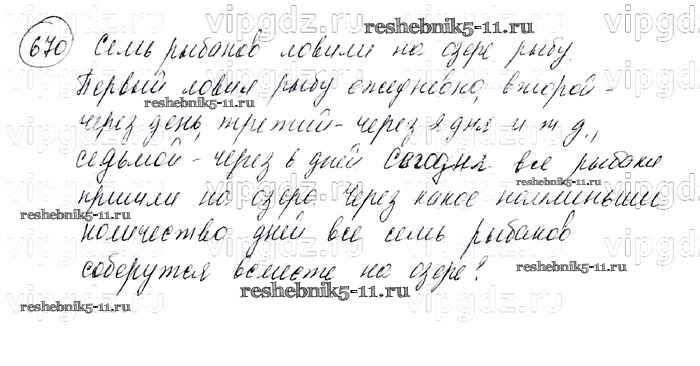 670 Семь рыбаков ловили на озере рыбу.
Первый ловил рыбу ежедневно, второй -
через день, третий - через 2 дня и т. д.,
седьмой - через 6 дней. Сегодня все рыбаки
пришли на озеро. Через какое наименьшее
количество дней все семь рыбаков
соберутся вместе на озере?
vipgdz.ru
reshebnik5-11.ru
reshebnik5-11.ru
reshebnik5-11.ru
reshebnik5-11.ru
reshebnik5-11.ru
reshebnik5-11.ru